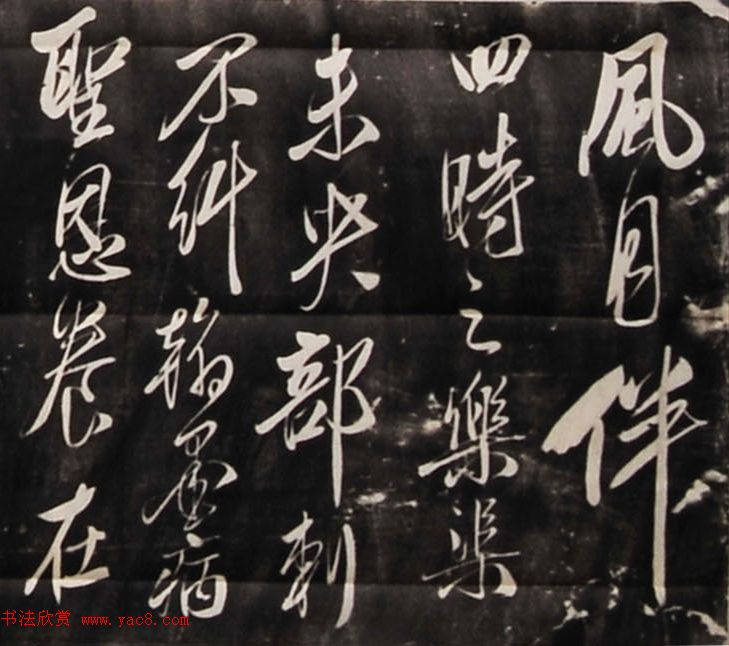 風月伴
四時之樂渠
未央部刺
不糾翰墨病
聖恩養在
书法欣赏 www.yac8.com